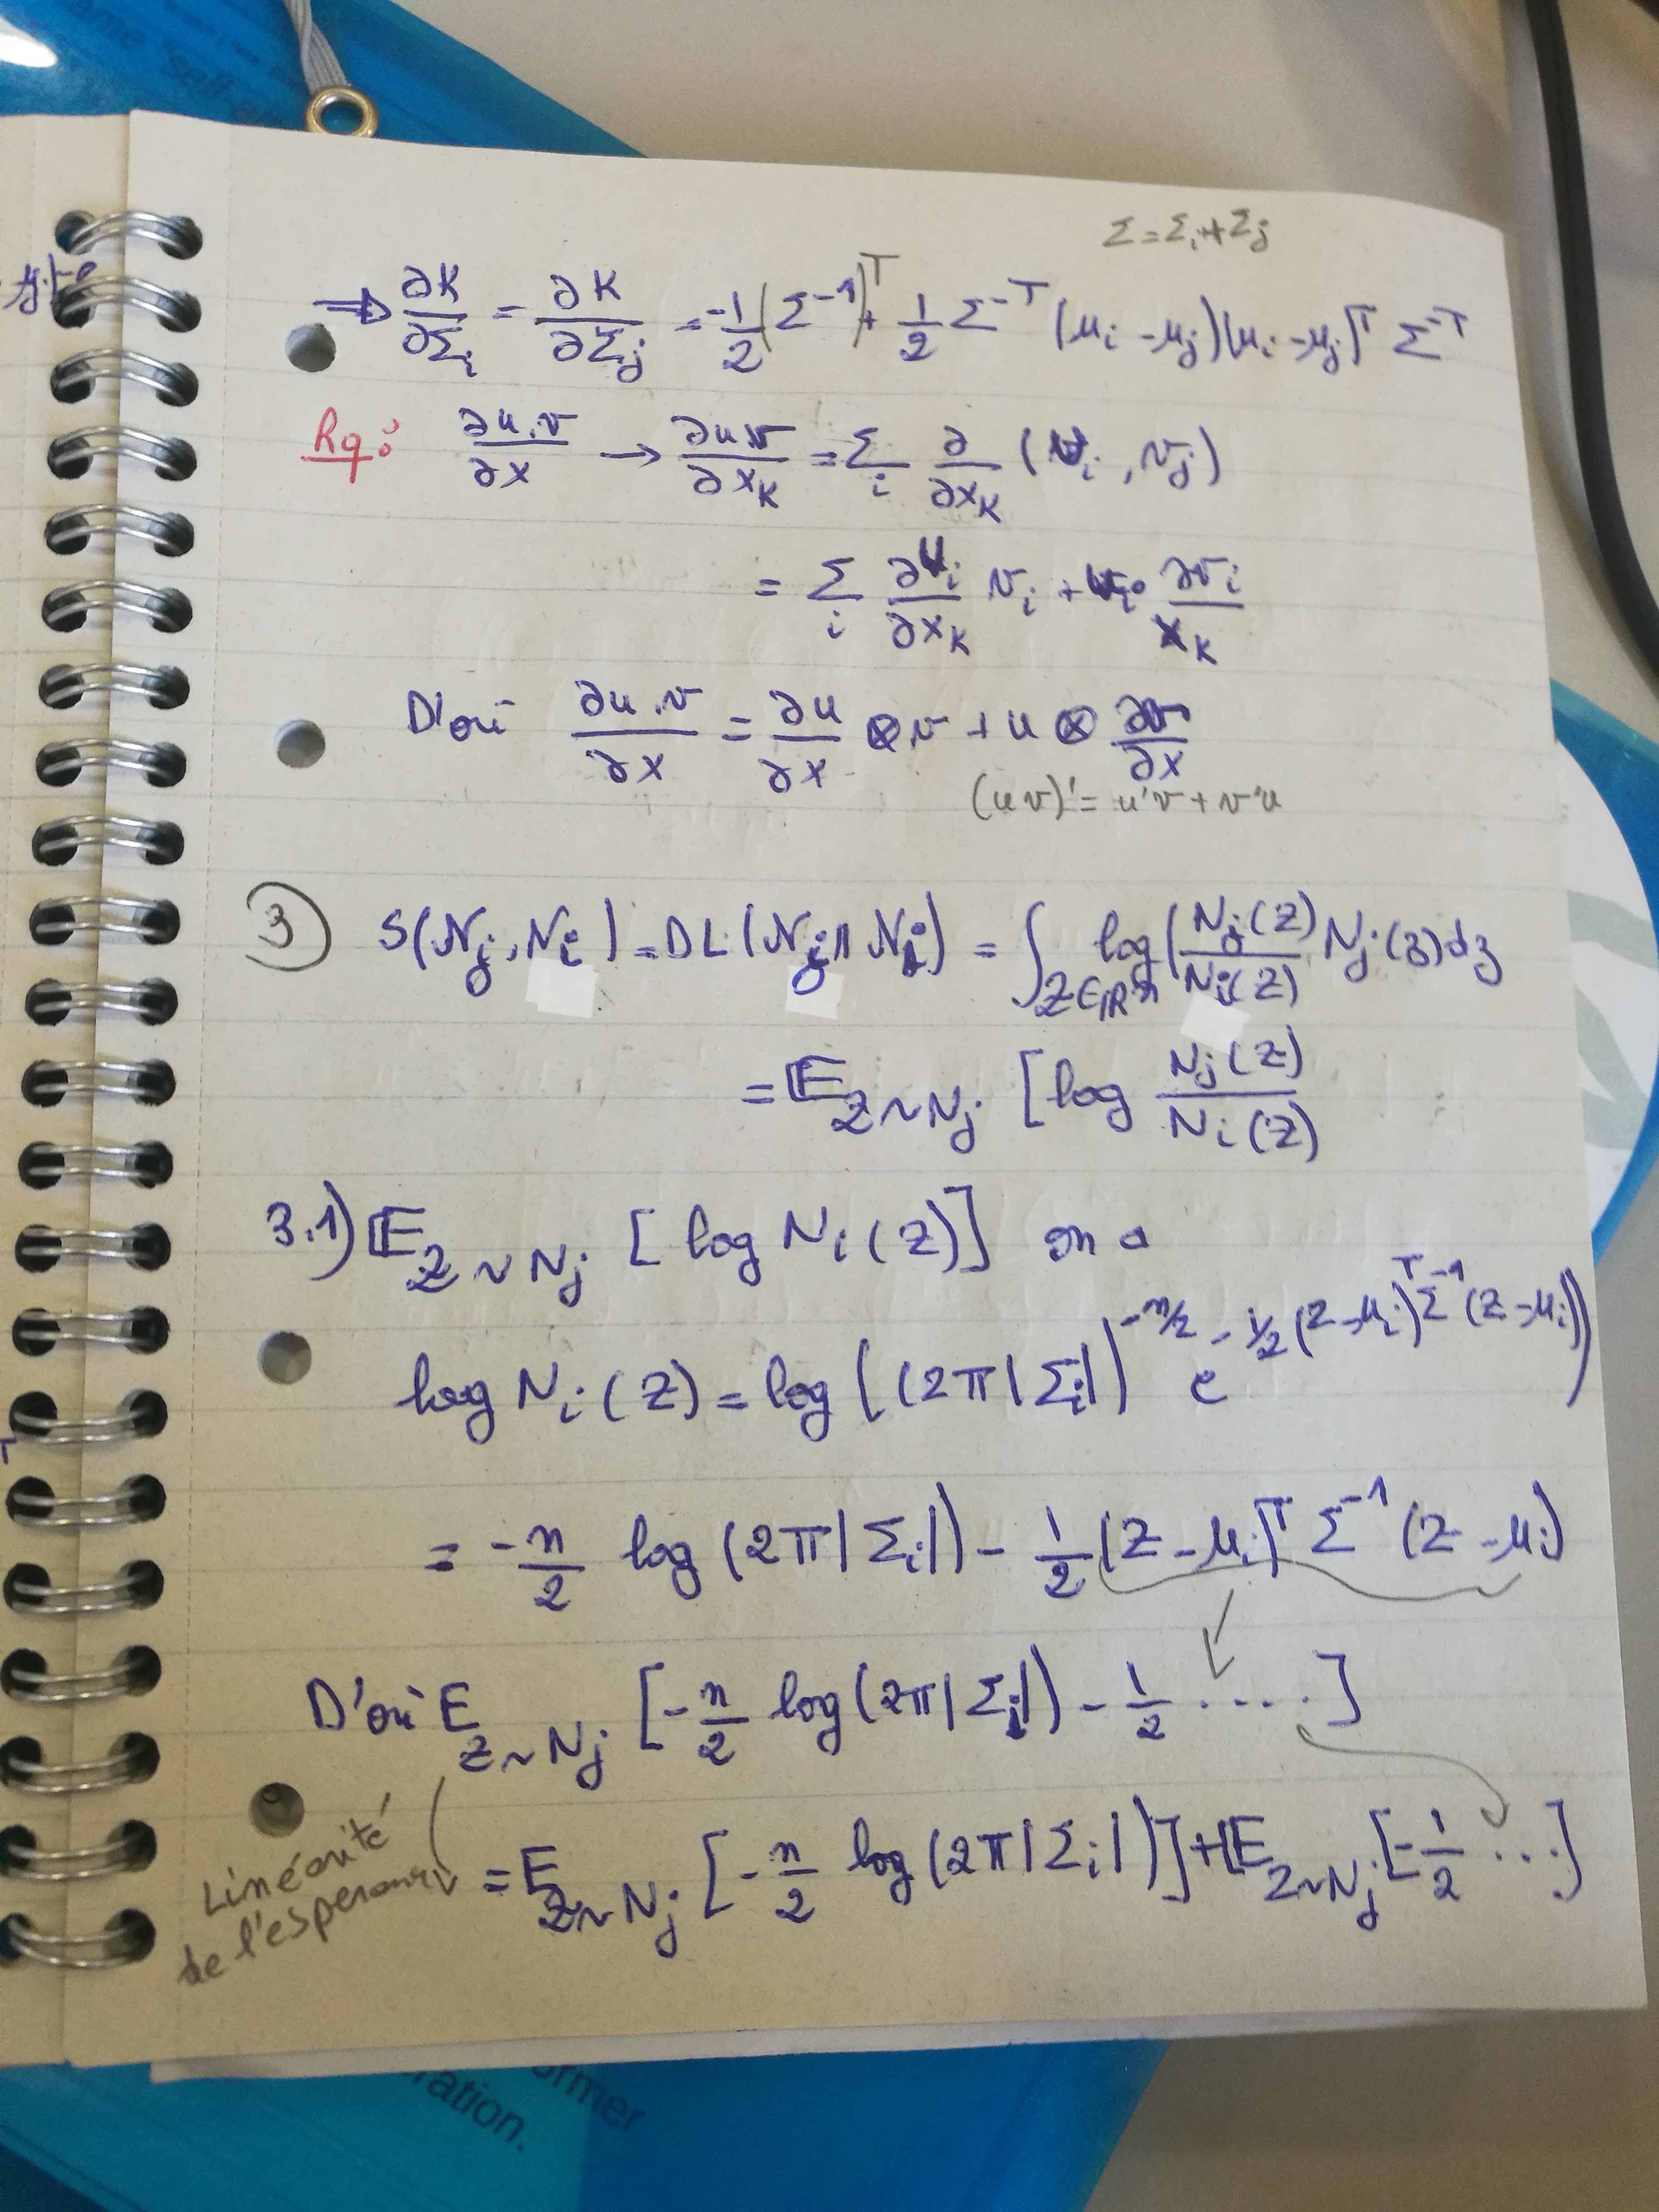 Σ = Σᵢ + Σⱼ
⇒ ∂K/∂Σᵢ = ∂K/∂Σⱼ = -1/2 (Σ⁻¹)ᵀ + 1/2 Σ⁻ᵀ (μᵢ - μⱼ)(μᵢ - μⱼ)ᵀ Σ⁻ᵀ
Rq: ∂u.v/∂x → ∂u.v/∂x_K = Σᵢ ∂/∂x_K (uᵢ, vⱼ)
= Σᵢ ∂uᵢ/∂x_K vᵢ + uᵢ ∂vᵢ/x_K
D'où ∂u.v/∂x = ∂u/∂x ⊗ v + u ⊗ ∂v/∂x
(uv)' = u'v + v'u
3) S(Nⱼ, Nᵢ) = DL(Nⱼ || Nᵢ) = ∫_{Z∈ℝⁿ} log(Nⱼ(Z)/Nᵢ(Z) Nⱼ(z) dz
= E_{Z∼Nⱼ} [log Nⱼ(Z)/Nᵢ(Z)
3.1) E_{Z∼Nⱼ} [log Nᵢ(Z)] on a
log Nᵢ(Z) = log((2π|Σᵢ|)^{-n/2} e^{-1/2 (Z-μᵢ)ᵀ Σ⁻¹ (Z-μᵢ)})
= -n/2 log(2π|Σᵢ|) - 1/2 (Z-μᵢ)ᵀ Σ⁻¹ (Z-μᵢ)
D'où E_{Z∼Nⱼ} [-n/2 log(2π|Σᵢ|) - 1/2 ....]
= E_{Z∼Nⱼ} [-n/2 log(2π|Σᵢ|)] + E_{Z∼Nⱼ} [-1/2 ...]
Linéarité
de l'esperance
ormer
ration.